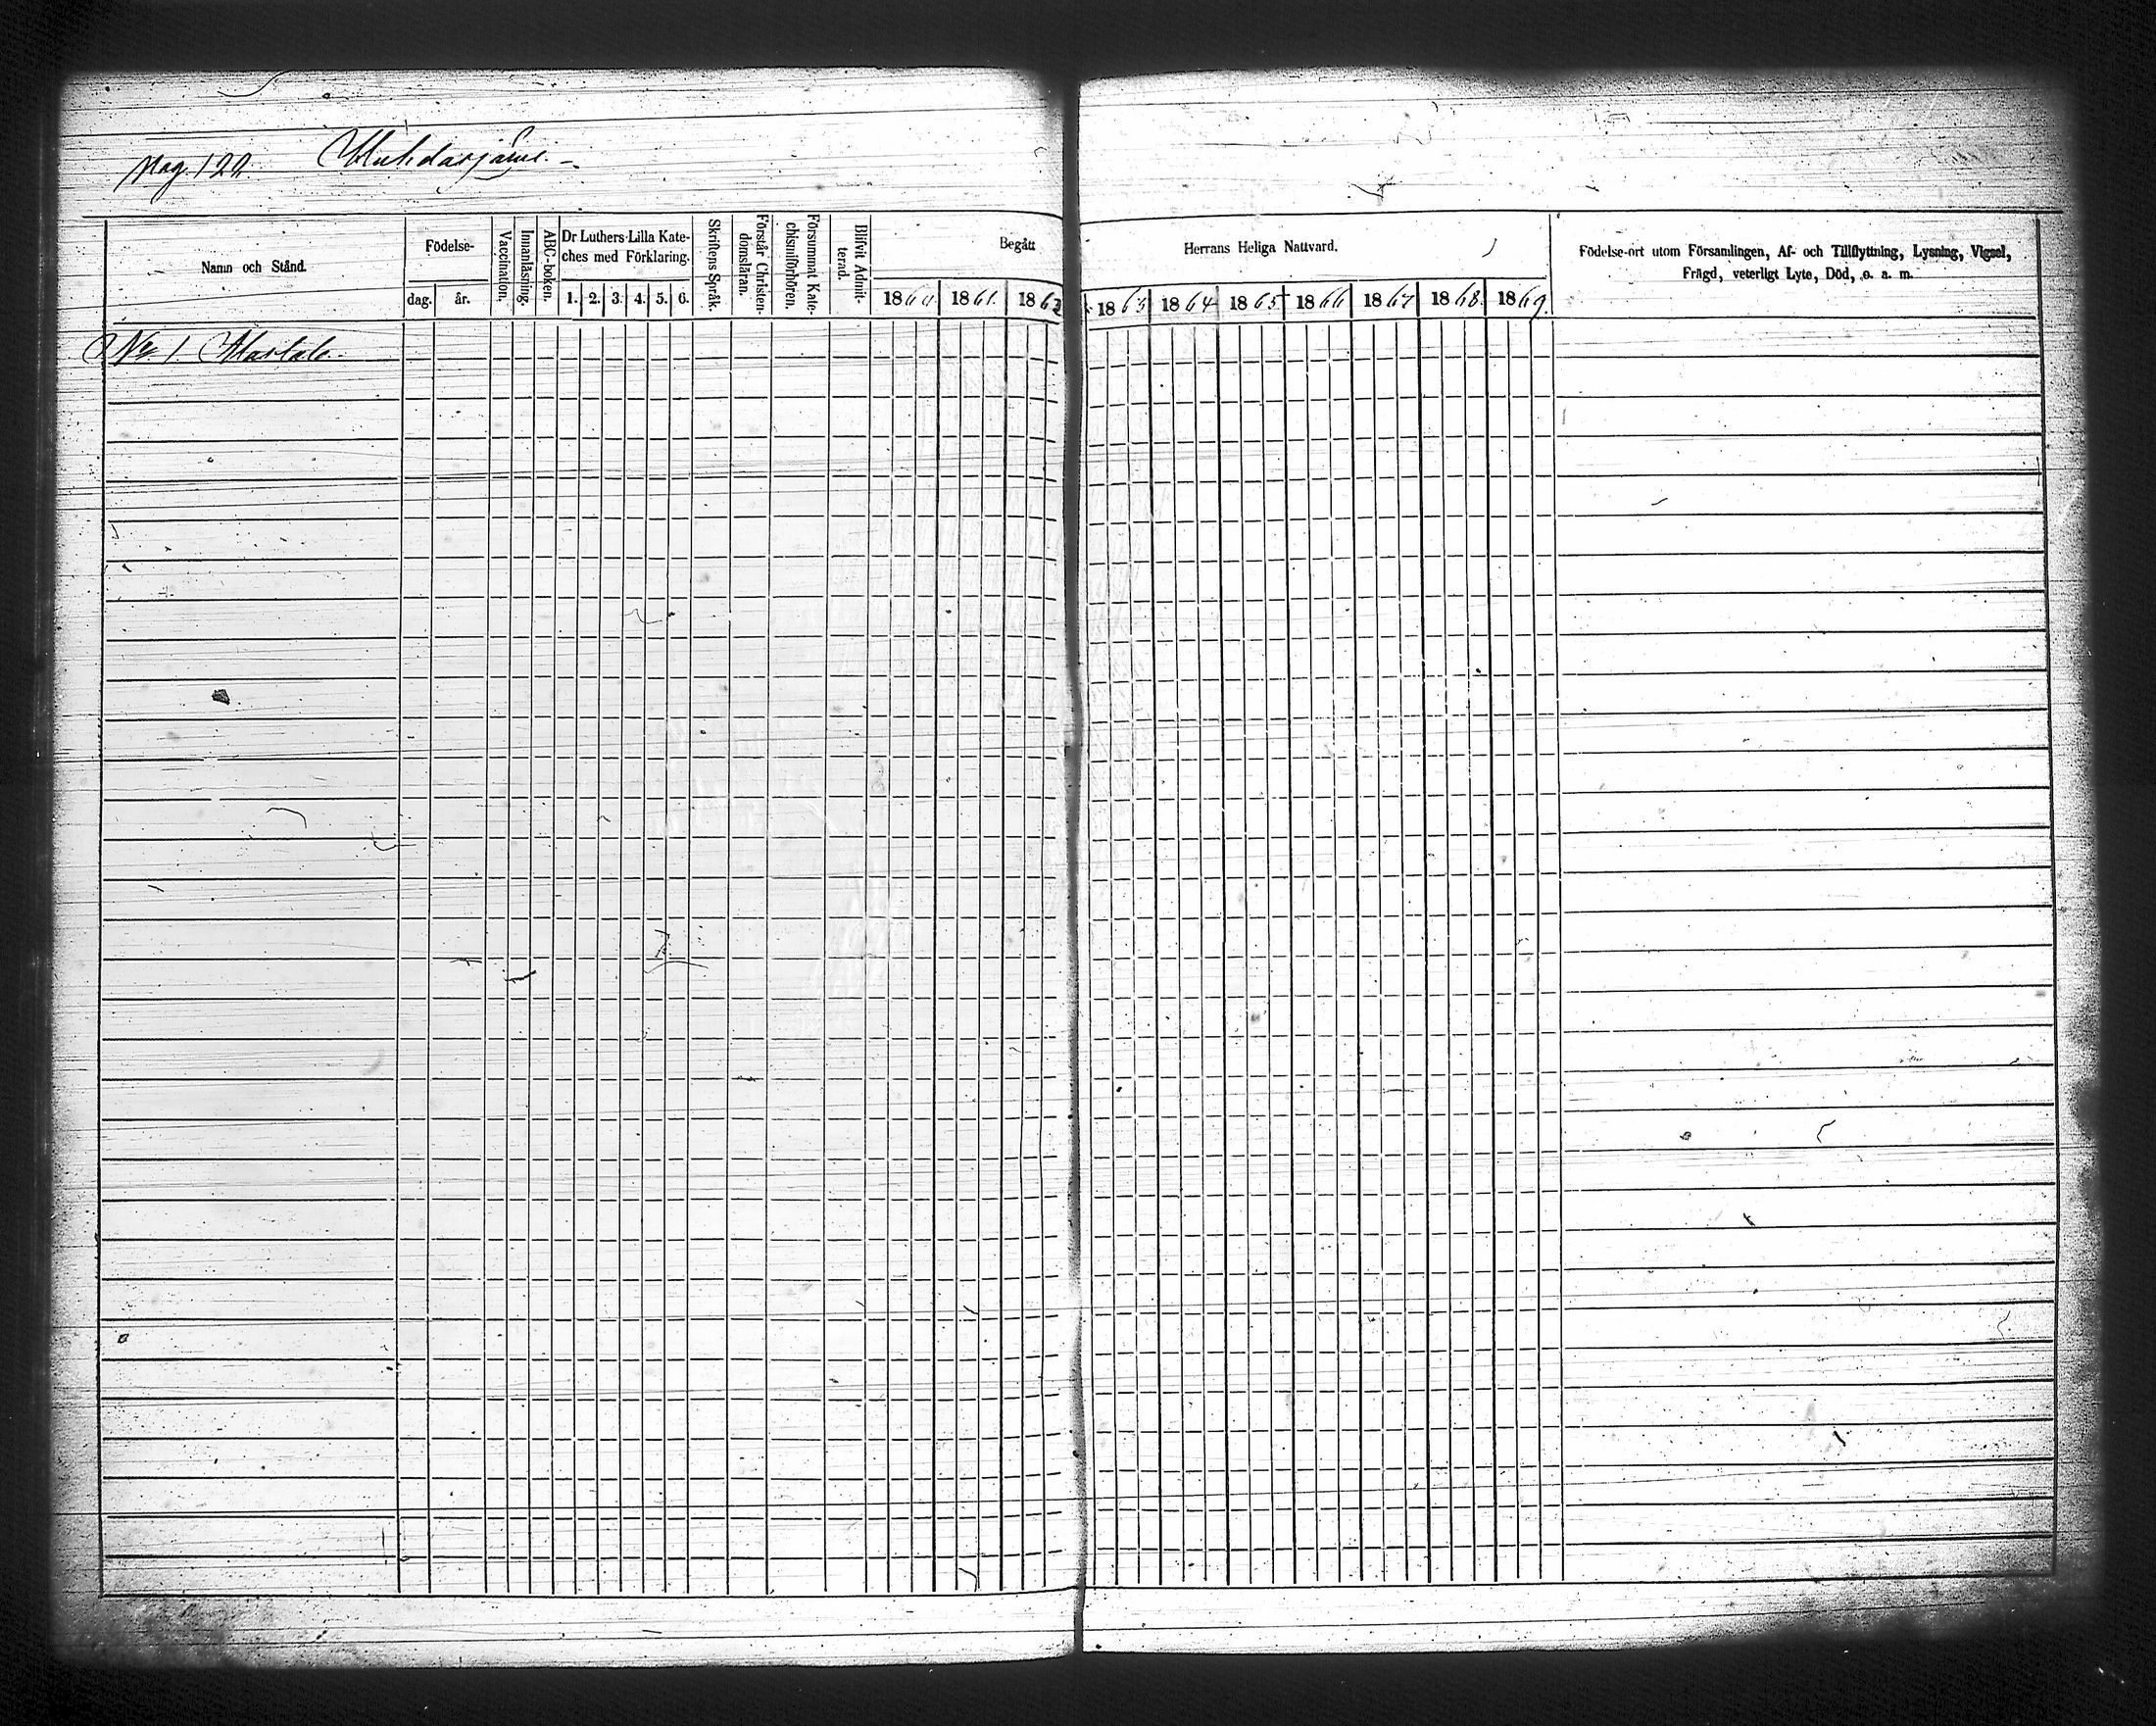 Pag. 122. Muhdasjärvi. -
Namn och Stånd.
Födelse-
dag. år.
Vaccination.
Innanläsning.
ABC-boken.
Dr Luthers Lilla Kate-
ches med Förklaring.
1. 2. 3. 4. 5. 6.
Skriftens Språk.
Förstår Christen-
domsläran.
Försummat Kate-
chismiförhören.
Blifvit Admit-
terad.
Begått Herrans Heliga Nattvard.
1860 1861. 1862 1863 1864 1865 1866 1867 1868. 1869.
Födelse-ort utom Församlingen, Af- och Tillflyttning, Lysning, Vigsel,
Frägd, veterligt Lyte, Död, o. a. m.
No 1